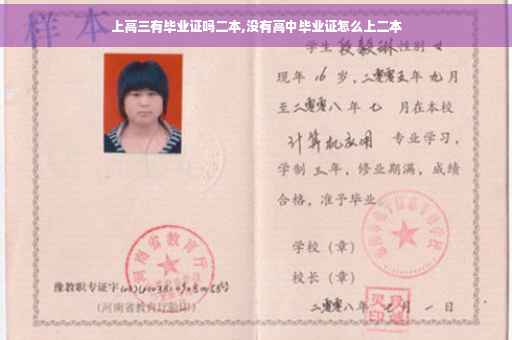 上高三有毕业证吗二本,没有高中毕业证怎么上二本
样本
学生 段毅琳 性别 女
现年 16 岁,二零零五年 九 月
至二零零八 年 七 月在本校
计算机应用 专业学习,
学制 三 年,修业期满,成绩
合格,准予毕业
学校(章)
校长(章)
二零零八年 七 月 一 日
河南省教育厅
豫教职专证字
(河南省教育厅验印)